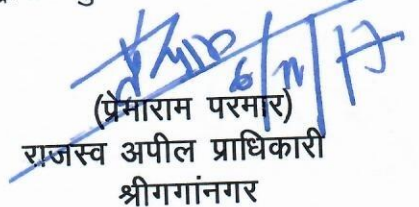 6/11/17
(प्रेमाराम परमार)
राजस्व अपील प्राधिकारी
श्रीगगांनगर